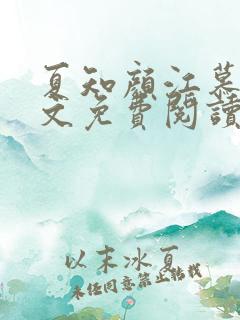 夏知顏江慕
文免費閱讀
以末冰夏
未经同意禁止转载